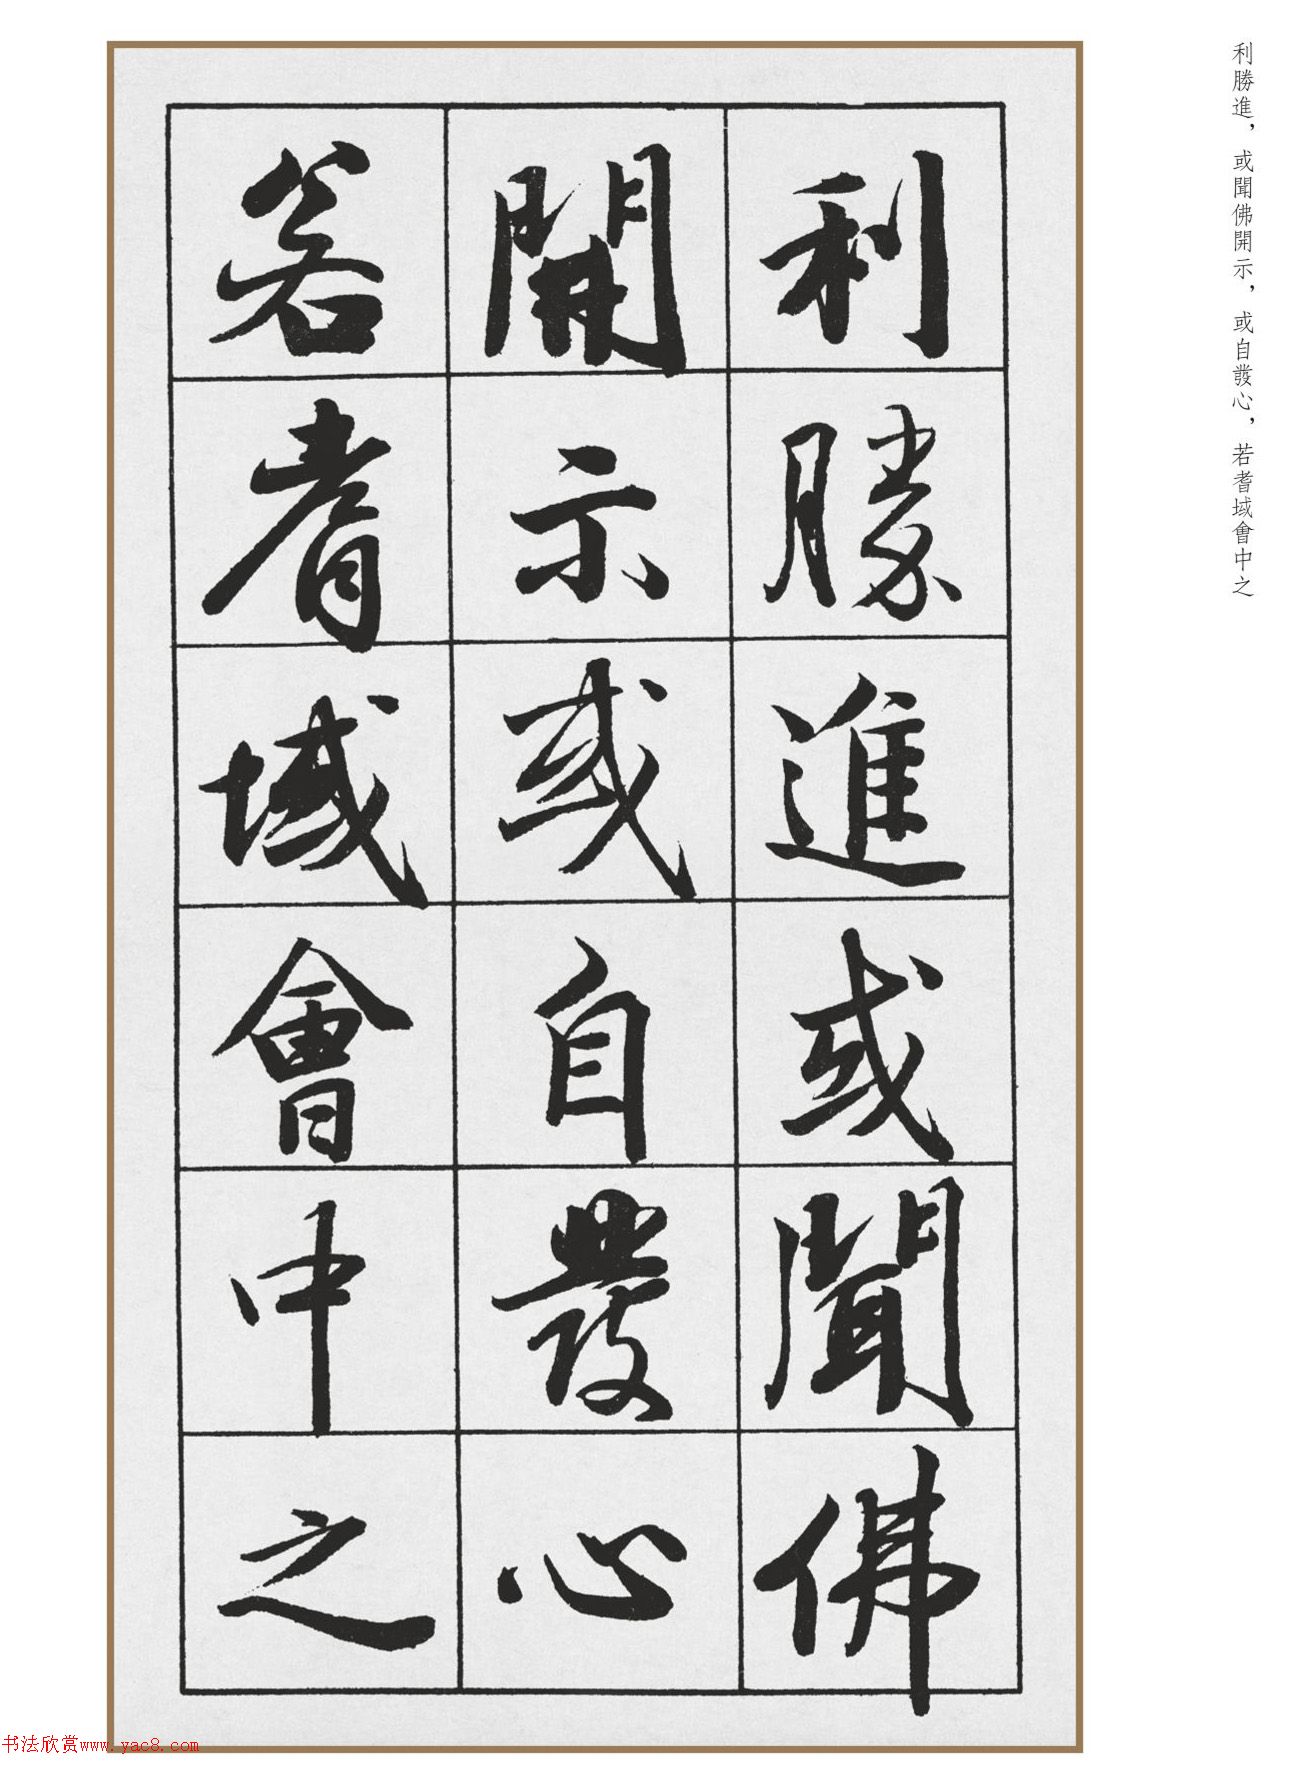 利勝進，或聞佛開示，或自發心，若耆域會中之
利勝進或聞佛
開示或自發心
若耆域會中之
书法欣赏www.yac8.com